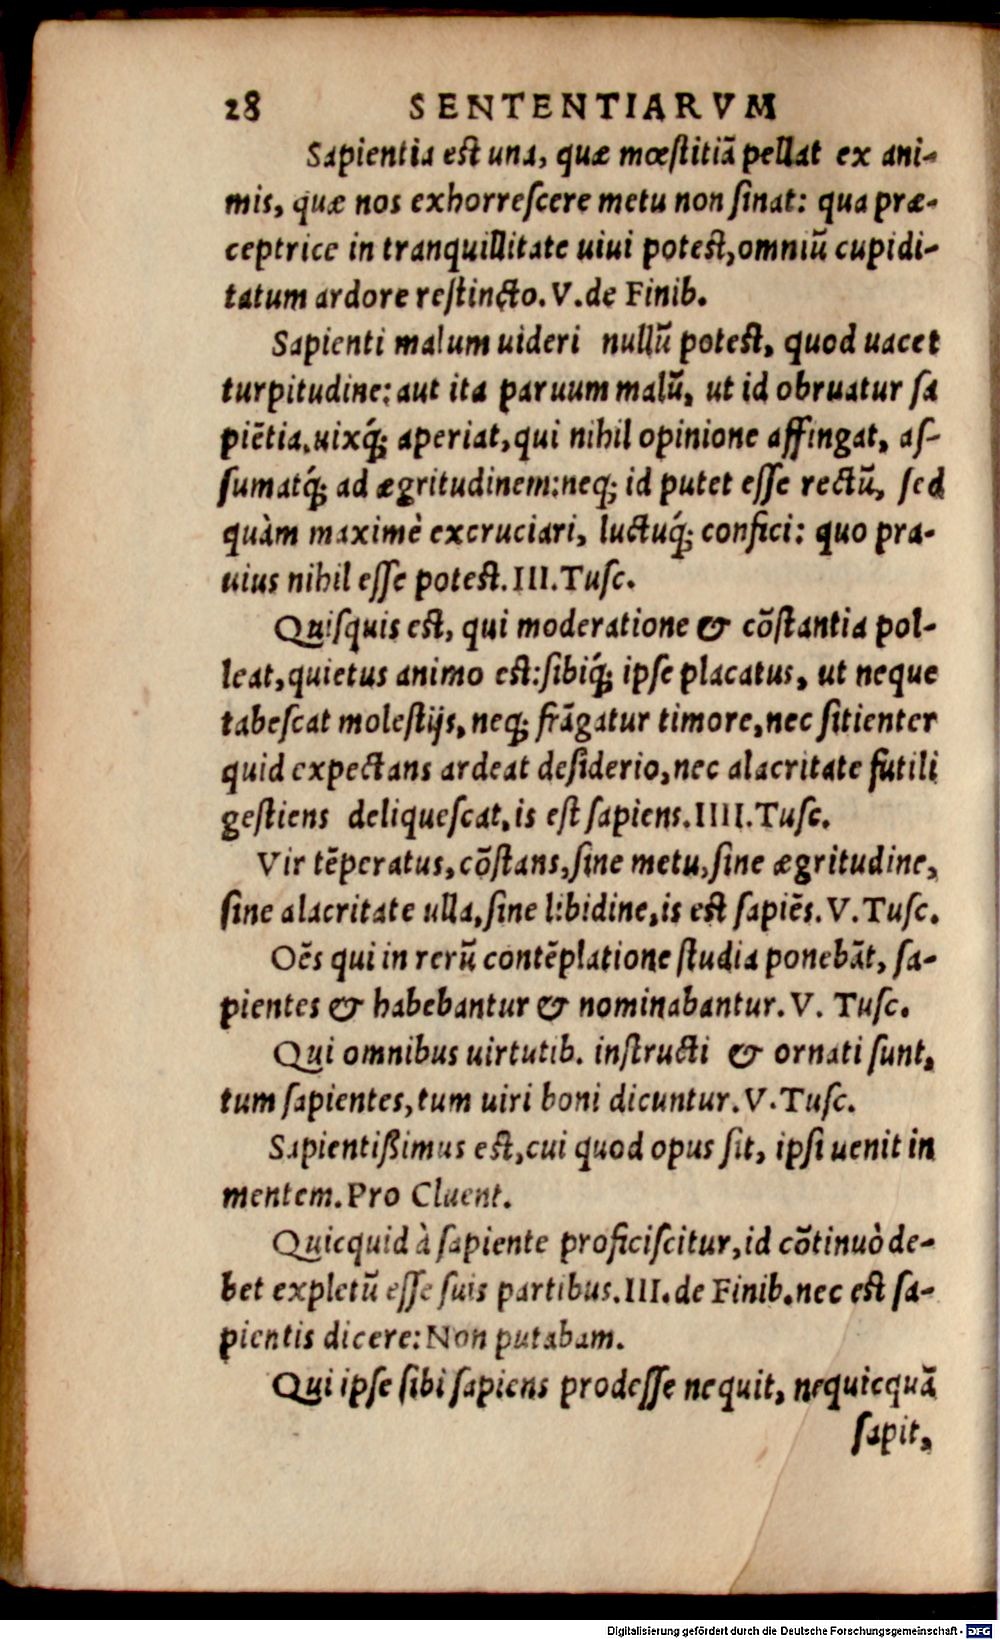 28 SENTENTIARVM
Sapientia est una, quæ mœstitiã pellat ex ani-
mis, quæ nos exhorrescere metu non sinat: qua præ-
ceptrice in tranquillitate uiui potest, omniũ cupidi-
tatum ardore restincto. V. de Finib.
Sapienti malum uideri nullũ potest, quod uacet
turpitudine: aut ita paruum malũ, ut id obruatur sa
piẽtia, uixq́; aperiat, qui nihil opinione affingat, as-
sumatq́; ad ægritudinem: neq; id putet esse rectũ, sed
quàm maximè excruciari, luctuq́; confici: quo pra-
uius nihil esse potest. III. Tusc.
Quisquis est, qui moderatione & cõstantia pol-
leat, quietus animo est: sibiq́; ipse placatus, ut neque
tabescat molestijs, neq; frãgatur timore, nec sitienter
quid expectans ardeat desiderio, nec alacritate futili
gestiens deliquescat, is est sapiens. IIII. Tusc.
Vir tẽperatus, cõstans, sine metu, sine ægritudine,
sine alacritate ulla, sine libidine, is est sapiẽs. V. Tusc.
Oẽs qui in rerũ contẽplatione studia ponebãt, sa-
pientes & habebantur & nominabantur. V. Tusc.
Qui omnibus uirtutib. instructi & ornati sunt,
tum sapientes, tum uiri boni dicuntur. V. Tusc.
Sapientißimus est, cui quod opus sit, ipsi uenit in
mentem. Pro Cluent.
Quicquid à sapiente proficiscitur, id cõtinuò de-
bet expletũ esse suis partibus. III. de Finib. nec est sa-
pientis dicere: Non putabam.
Qui ipse sibi sapiens prodesse nequit, nequicquã
sapit,
Digitalisierung gefördert durch die Deutsche Forschungsgemeinschaft - DFG